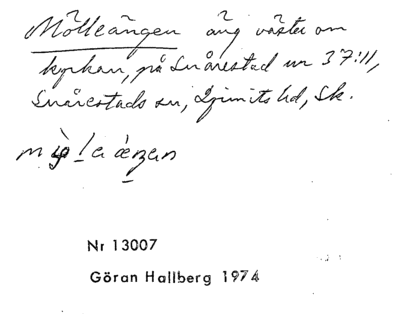 Mölleängen äng väster om
kyrkan, på Snårestad nr 37:11,
Snårestads sn, Ljunits hd, Sk.
Nr 13007
Göran Hallberg 1974